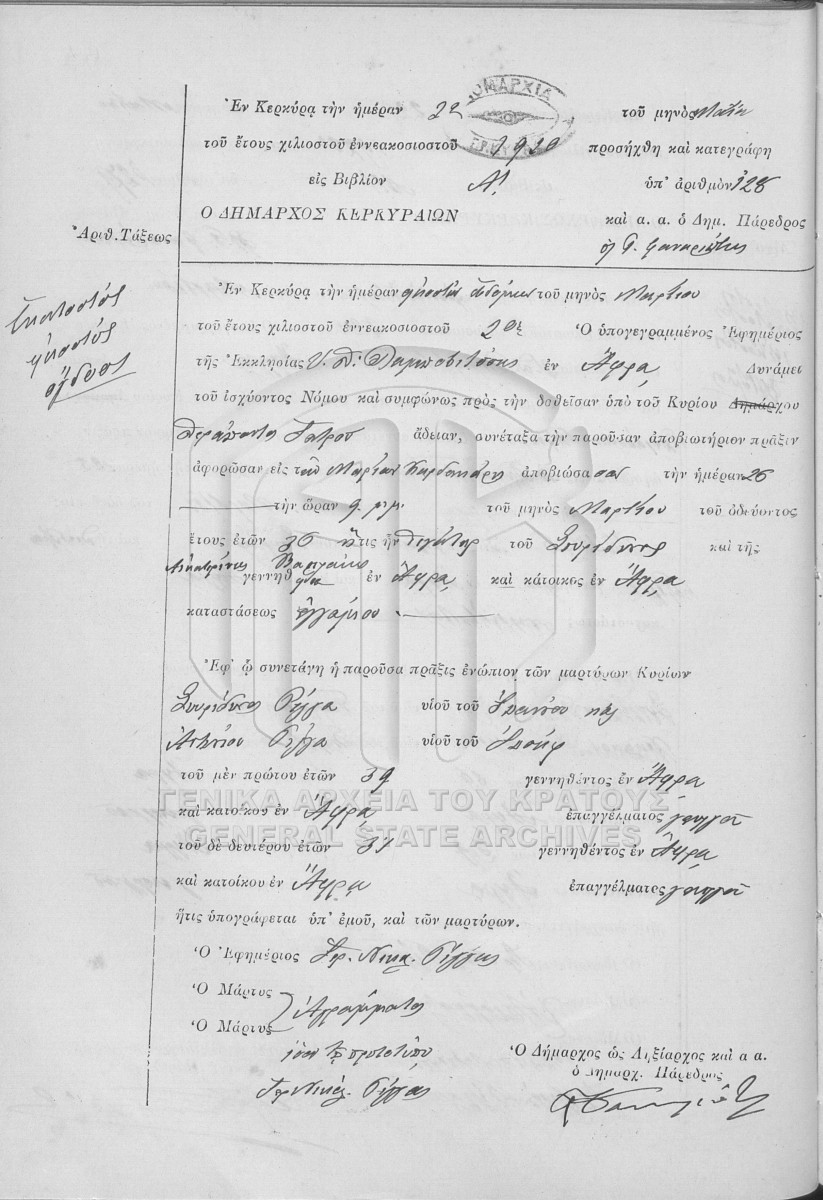 ΔΗΜΑΡΧΙΑ
Ἐν Κερκύρᾳ τὴν ἡμέραν 22 τοῦ μηνὸς
τοῦ ἔτους χιλιοστοῦ ἐννεακοσιοστοῦ 1920 προσήχθη καὶ κατεγράφη
εἰς Βιβλίον Α! ὑπ' ἀριθμὸν 128
Ο ΔΗΜΑΡΧΟΣ ΚΕΡΚΥΡΑΙΩΝ καὶ α. α. ὁ Δημ. Πάρεδρος
Ἀριθ. Τάξεως
Ἑκατοστός
εἰκοστός
ὄγδοος
Ἐν Κερκύρᾳ τὴν ἡμέραν εἰκοστὴν ἑβδόμην τοῦ μηνὸς Μαρτίου
τοῦ ἔτους χιλιοστοῦ ἐννεακοσιοστοῦ Ὁ ὑπογεγραμμένος Ἐφημέριος
τῆς Ἐκκλησίας Υ. Θ. ἐν Ἄφρᾳ Δυνάμει
τοῦ ἰσχύοντος Νόμου καὶ συμφώνως πρὸς τὴν δοθεῖσαν ὑπὸ τοῦ Κυρίου Δημάρχου
Θεράποντος Ἰατροῦ ἄδειαν, συνέταξα τὴν παροῦσαν ἀποβιωτήριον πρᾶξιν
ἀφορῶσαν εἰς τὴν ἀποβιώσασαν τὴν ἡμέραν 26
τὴν ὥραν 9 μ.μ. τοῦ μηνὸς Μαρτίου τοῦ ὁδεύοντος
ἔτους ἐτῶν 36 ἥτις ἦν θυγάτηρ τοῦ Σπυρίδωνος καὶ τῆς
Αἰκατερίνης
γεννηθ εῖσα ἐν Ἄφρᾳ καὶ κάτοικος ἐν Ἄφρᾳ
καταστάσεως ἐγγάμου
Ἐφ' ᾧ συνετάγη ἡ παροῦσα πρᾶξις ἐνώπιον τῶν μαρτύρων Κυρίων
Σπυρίδωνος Ρίγγα υἱοῦ τοῦ Ἰωάννου καὶ
Ἀντωνίου Ρίγγα υἱοῦ τοῦ Ἰωσήφ
τοῦ μὲν πρώτου ἐτῶν 39 γεννηθέντος ἐν Ἄφρᾳ
ΓΕΝΙΚΑ ΑΡΧΕΙΑ ΤΟΥ ΚΡΑΤΟΥΣ
καὶ κατοίκου ἐν Ἄφρᾳ ἐπαγγέλματος γεωργοῦ
GENERAL STATE ARCHIVES
τοῦ δὲ δευτέρου ἐτῶν 31 γεννηθέντος ἐν Ἄφρᾳ
καὶ κατοίκου ἐν Ἄφρᾳ ἐπαγγέλματος γεωργοῦ
ἥτις ὑπογράφεται ὑπ' ἐμοῦ, καὶ τῶν μαρτύρων.
Ὁ Ἐφημέριος Ἱερ. Νικολ. Ρίγγας
Ὁ Μάρτυς
Ἀγράμματοι
Ὁ Μάρτυς
ἴσον τῷ πρωτοτύπῳ
Ὁ Δήμαρχος ὡς Ληξίαρχος καὶ α α.
ὁ Δημαρχ. Πάρεδρος
Ἱερ Νικόλ. Ρίγγας